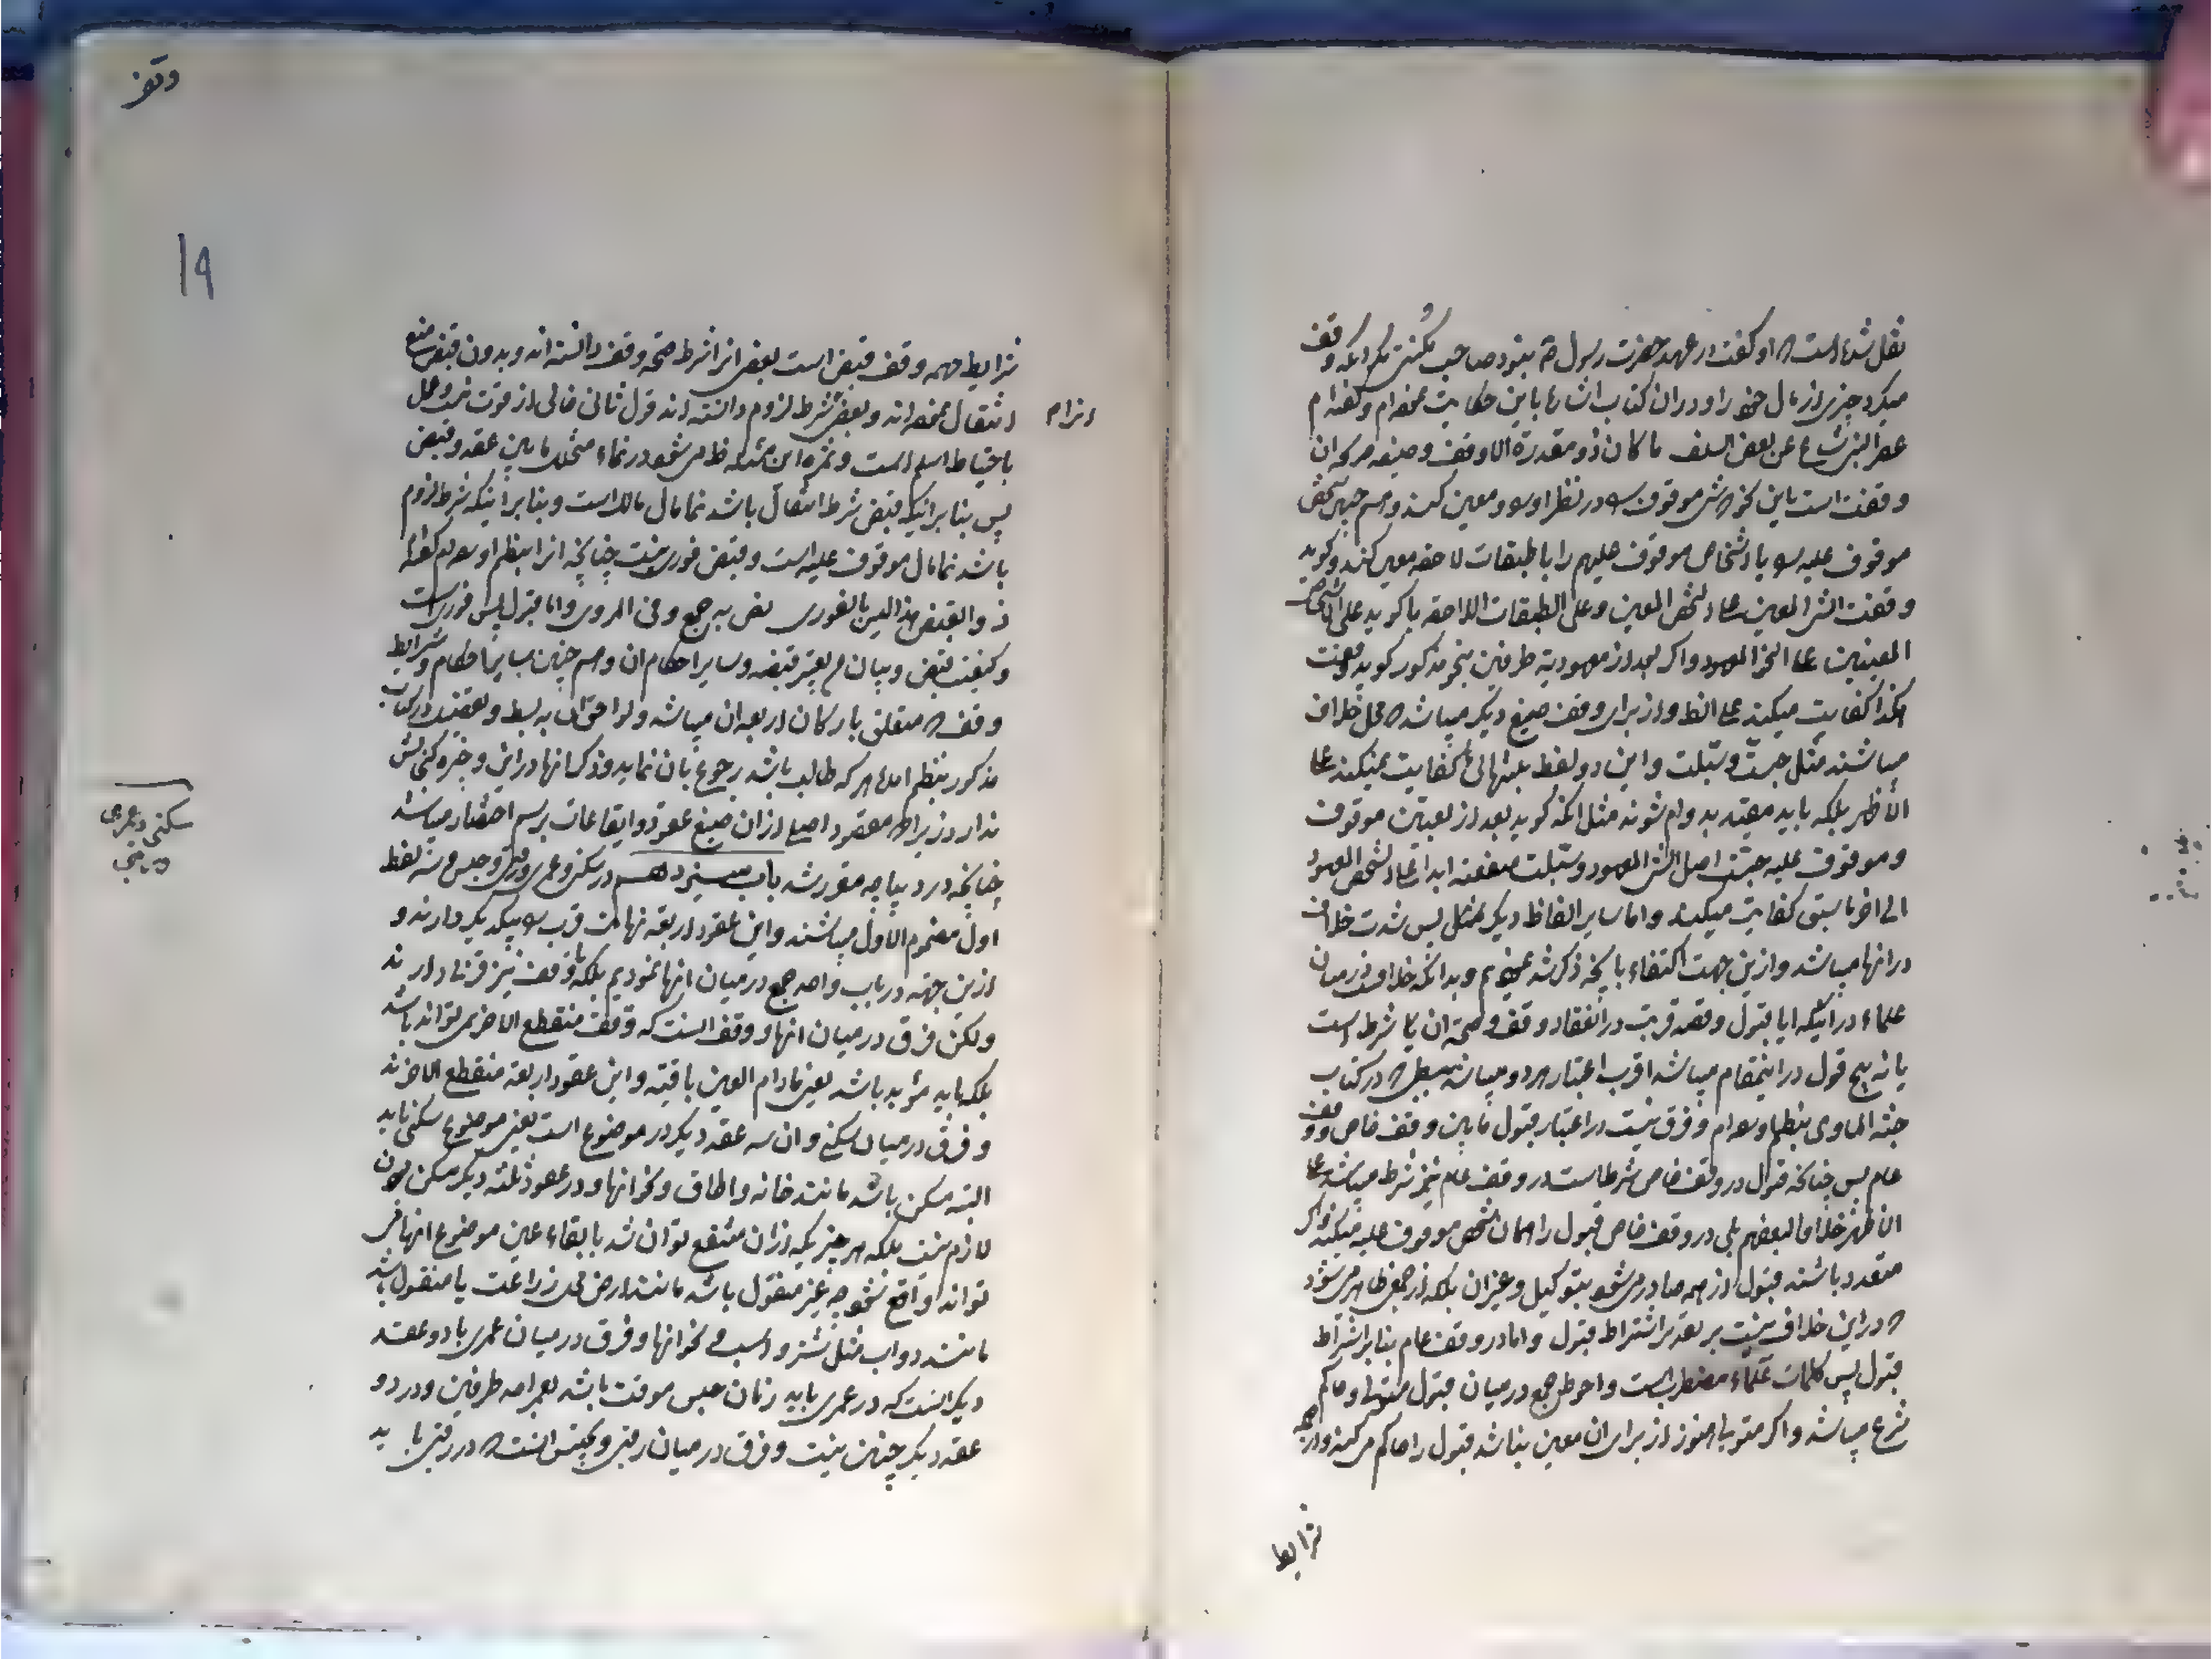 نقل شده است که او گفت در عهد حضرت رسول ص نبود صاحب مکنتی مگر آنکه وقف
میکرد چیزی از مال خود را و در ان کتاب اشاره باین حکایت نموده ام و گفته ام
عصر النبی شاع عن بعض السلف ما کان ذو مقدرة الا وقف و صیغه مرکه ان
وقفت است باین نحو که شیء موقوف را در نظر اورد و معین کند و هم چنین شخص
موقوف علیه را یا اشخاص موقوف علیهم را با طبقات لاحقه معین کند و گوید
وقفت الشیء المعین علی الشخص المعین و علی الطبقات اللاحقه یا گوید علی الاشخاص
المعینین علی النحو المعهود و اگر بعد از معهودیة طرفین بنحو مذکور گوید وقفت
هکذا کفایت میکند علی الظ و از برای وقف صیغ دیگر میباشد که محل خلاف
میباشند مثل حبست و سبلت و این دو لفظ بتنهائی کفایت نمیکند علی
الأظهر بلکه باید مقید بدوام شوند مثل انکه گوید بعد از تعیین موقوف
و موقوف علیه حبست اصل الشیء المعهود و سبلت منفعته ابدا علی الشخص المعهود
الی اخر ما سبق کفایت میکند و اما سایر الفاظ دیگر مثل پس شدت خلاف
در انها میباشد و ازین جهت اکتفاء بانچه ذکر شد نمودیم و بدانکه خلاف در میان
علماء در اینکه ایا قبول و قصد قربت در انعقاد وقف و صحة ان شرط است
یا نه پنج قول در اینمقام میباشد اقرب اعتبار هر دو میباشد که در کتاب
جنة الماوی بنظم اورده ام و فرق نیست در اعتبار قبول مابین وقف خاص و وقف
عام پس چنانکه قبول در وقف خاص شرط است در وقف عام نیز شرط میباشد علی
الاظهر خلافا لبعضهم بلی در وقف خاص قبول را همان شخص موقوف علیه میکند و اگر
متعدد باشند قبول از همه صادر می شود بتوکیل و غیر ان بلکه از جمعی ظاهر می شود
که در این خلاف نیست بر تقدیر اشتراط قبول و اما در وقف عام بنابر اشتراط
قبول پس کلمات علماء مضطرب است و احوط جمع در میان قبول متولی و حاکم
شرع میباشد و اگر متولی هنوز از برای ان معین نباشد قبول را حاکم می کند و از جمله
شرایط
وقف
19
شرایط مهمه وقف قبض است بعضی انرا شرط صحه وقف دانسته اند و بدون قبض منع
انتقال نموده اند و بعضی شرط لزوم دانسته اند قول ثانی خالی از قوت نیست و عمل
باحتیاط اسلم است و ثمره این مسئله ظاهر می شود در نماء متخلل مابین عقد و قبض
پس بنابر اینکه قبض شرط انتقال باشد نما مال مالک است و بنابر اینکه شرط لزوم
باشد نما مال موقوف علیه است و قبض فوری نیست چنانچه انرا بنظم اورده ام گفته ام
ذو القبض هذا لیس بالفوری نص به جمع و فی المروی و اما قبول پس فوری است
و کیفیت قبض و بیان من یعتبر قبضه و سایر احکام ان و هم چنین سایر احکام و شرایط
وقف که متعلق بارکان اربعه ان میباشد و لواحق ان به بسط و تفصیل در کتاب
مذکور بنظم امده هر که طالب باشد رجوع بان نماید و ذکر انها در این وجیزه گنجایش
ندارد زیرا که مقصود اصلی از ان صیغ عقود و ایقاعات برسم اختصار میباشد
چنانچه در دیباجه مقرر شد باب سیزدهم در سکنی و عمری و رقبی و حبس و سه لفظ
اول مضموم الاول میباشند و این عقود اربعه نهایت قرب را بیکدیگر دارند و
ازین جهته در باب واحد جمع در میان انها نمودیم بلکه با وقف نیز قرب دارند
ولکن فرق در میان انها و وقف انست که وقف منقطع الاخر نمی تواند باشد
بلکه باید مؤبد باشد یعنی مادام العین باقیه و این عقود اربعه منقطع الاخرند
و فرق در میان سکنی و ان سه عقد دیگر در موضوع است یعنی موضوع سکنی باید
البته مسکن باشد مانند خانه و اطاق و نحو انها و در عقود ثلثه دیگر مسکن بودن
لازم نیست بلکه هر چیزیکه از ان منتفع توان شد با بقاء عین موضوع انها می
تواند واقع شود چه غیر منقول باشد مانند ارض برای زراعت یا منقول باشد
مانند دواب مثل شتر و اسب و نحو انها و فرق در میان عمری با دو عقد
دیگر انست که در عمری باید زمان حبس موقت باشد بعمر احد طرفین و در دو
عقد دیگر چنین نیست و فرق در میان رقبی و حبس انست که در رقبی باید
سکنی و عمری
و رقبی